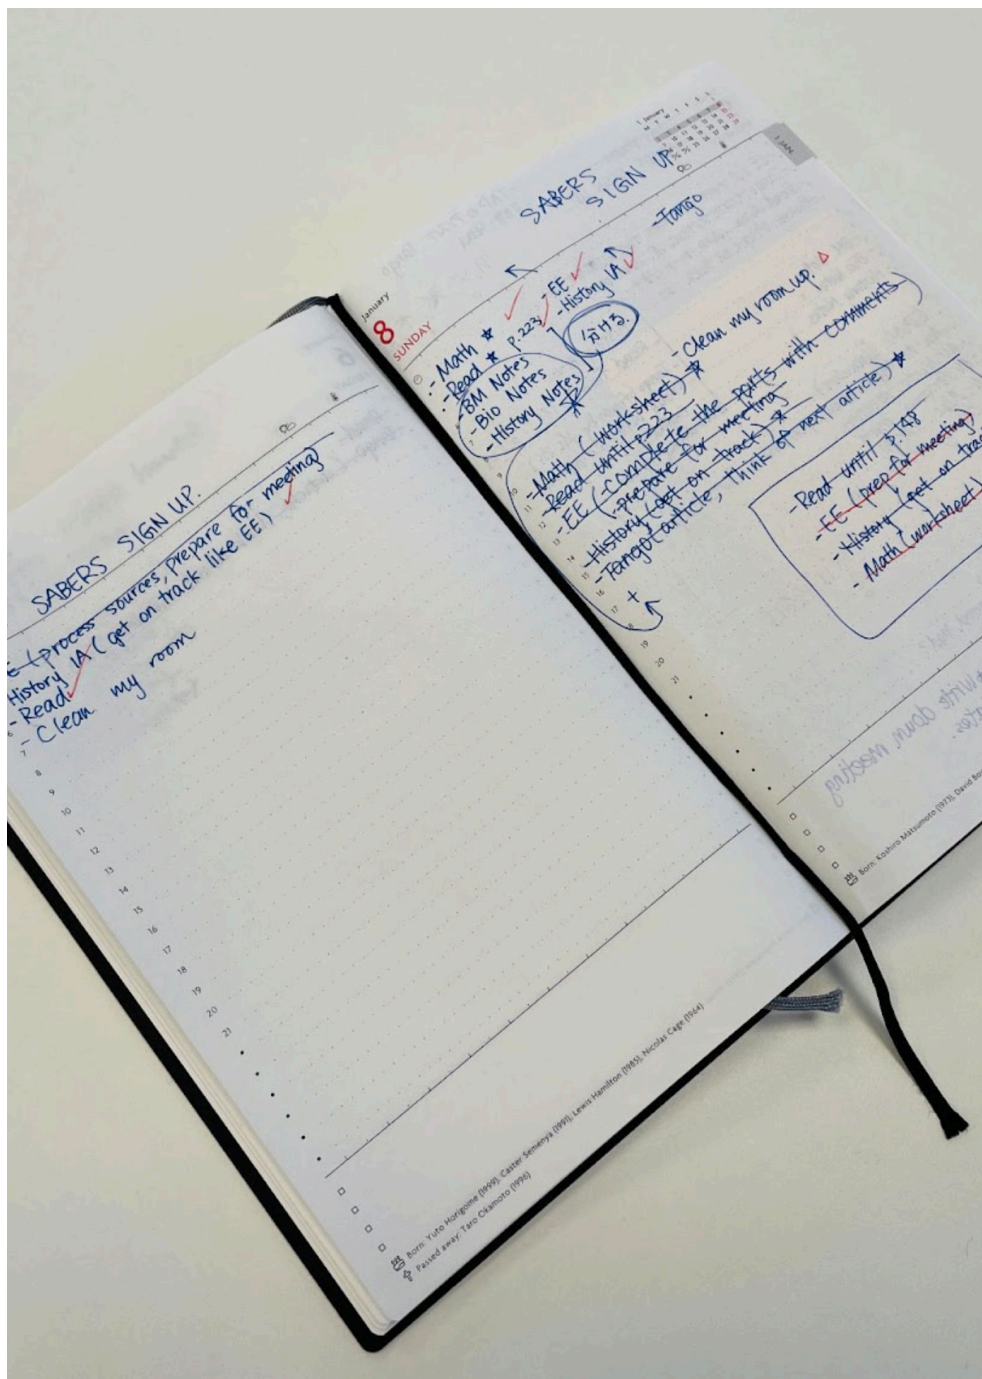 SABERS SIGN UP.
(process sources, prepare for meeting)
History IA (get on track like EE)
- Read
- Clean my room
7
8
9
10
11
12
13
14
15
16
17
18
19
20
21
Born: Yuto Horigome (1999), Caster Semenya (1991), Lewis Hamilton (1985), Nicolas Cage (1964)
Passed away: Taro Okamoto (1996)
1 January
1 JAN
SABERS SIGN UP
- Tango
January
8
SUNDAY
- EE
- History IA
- Math ★
- Read ★ p.223
- BM Notes
- Bio Notes
- History Notes
- Clean my room up.
- Math (worksheet) ★
- Read until p.223
- EE (-complete the parts with comments)
-prepare for meeting
- History (get on track) ★
- Tango (article, think of next article) ★
+
- Read until p.148
- EE (prep for meeting)
- History (get on
- Math (worksheet)
9
10
11
12
13
14
15
16
17
18
19
20
21
Born: Koshiro Matsumoto (1973), David